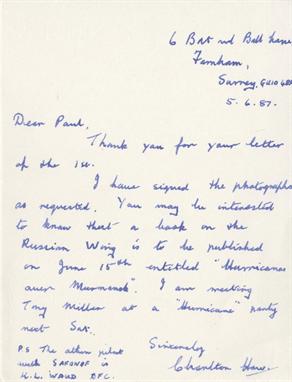 6 Bat and Ball Lane
Farnham,
Surrey, GU10 4RA
5.6.87.
Dear Paul,
Thank you for your letter
of the 1st.
I have signed the photographs
as requested. You may be interested
to know that a book on the
Russian Wing is to be published
on June 15th entitled "Hurricanes
over Murmansk". I am meeting
Tony Miller at a "Hurricane" party
next Sat.
Sincerely
Charlton Haw
P.S The other pilot
with SAFONOF is
K.L. WAUD DFC.